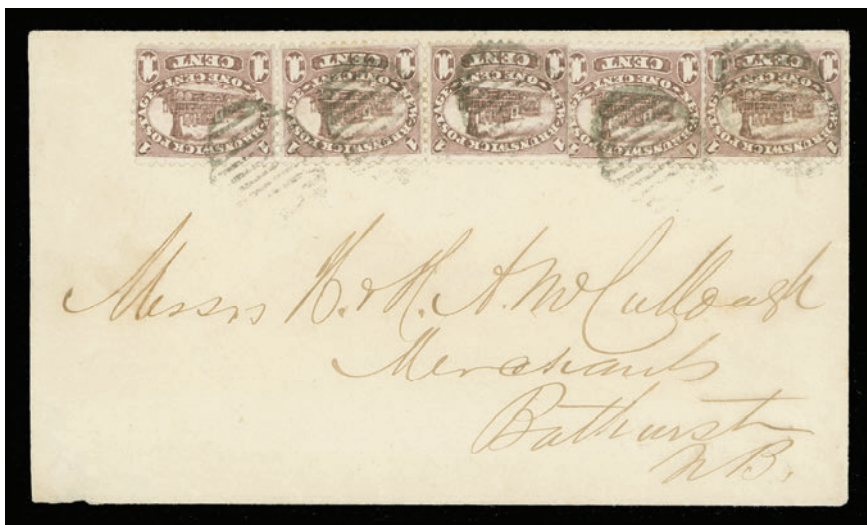 1 NEW BRUNSWICK POSTAGE 1
ONE CENT
1 CENT 1
1 NEW BRUNSWICK POSTAGE 1
ONE CENT
1 CENT 1
1 NEW BRUNSWICK POSTAGE 1
ONE CENT
1 CENT 1
1 NEW BRUNSWICK POSTAGE 1
ONE CENT
1 CENT 1
1 NEW BRUNSWICK POSTAGE 1
ONE CENT
1 CENT 1
Messrs H. & H. A. McCullough
Merchants
Bathurst
N.B.